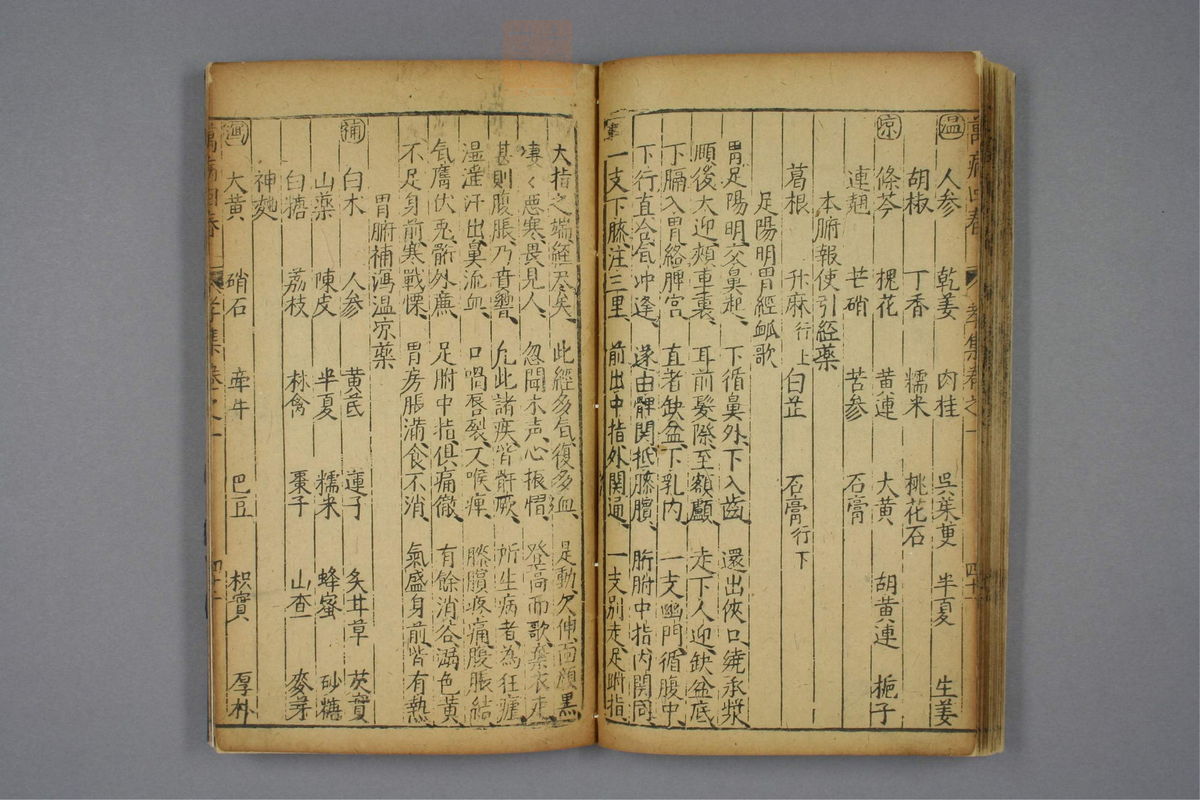 溫 人參 乾姜 肉桂 吳茱萸 半夏 生姜
胡椒 丁香 糯米 桃花石
凉 條芩 槐花 黃連 大黃 胡黃連 梔子
連翹 芒硝 苦參 石膏
本腑報使引經藥
葛根 升麻行上 白芷 石膏行下
足陽明胃經衇歌
胃足陽明交鼻起、下循鼻外、下入齒、還出俠口繞承漿
頥後大迎頰車裏、耳前髮際至額顱、走下人迎缺盆底
下膈入胃絡脾宮、直者缺盆下乳內、一支幽門循腹中
下行直合氣冲逢、遂由髀關抵膝臏、胻胕中指內關同
一支下膝注三里、前出中指外關通、一支別走足跗指
大指之端經尽矣、此經多氣復多血、是動欠伸面顔黑
凄〻惡寒畏見人、忽聞木声心振惕、登高而歌棄衣走
甚則腹脹乃賁響、凢此諸疾皆骭厥、所生病者為狂瘧
溫滛汗出鼻流血、口喎唇裂又喉痺、膝臏疼痛腹脹結
氣膺伏兎胻外廉、足胕中指俱痛徹、有餘消谷溺色黃
不足身前寒戰慄、胃房脹滿食不消、氣盛身前皆有熱
胃腑補瀉溫凉藥
補 白朮 人參 黃芪 蓮子 炙甘草 芡實
山藥 陳皮 半夏 糯米 蜂蜜 砂糖
白糖 荔枝 林禽 棗子 山查 麥芽
神麯
瀉 大黃 硝石 牽牛 巴豆 枳實 厚朴